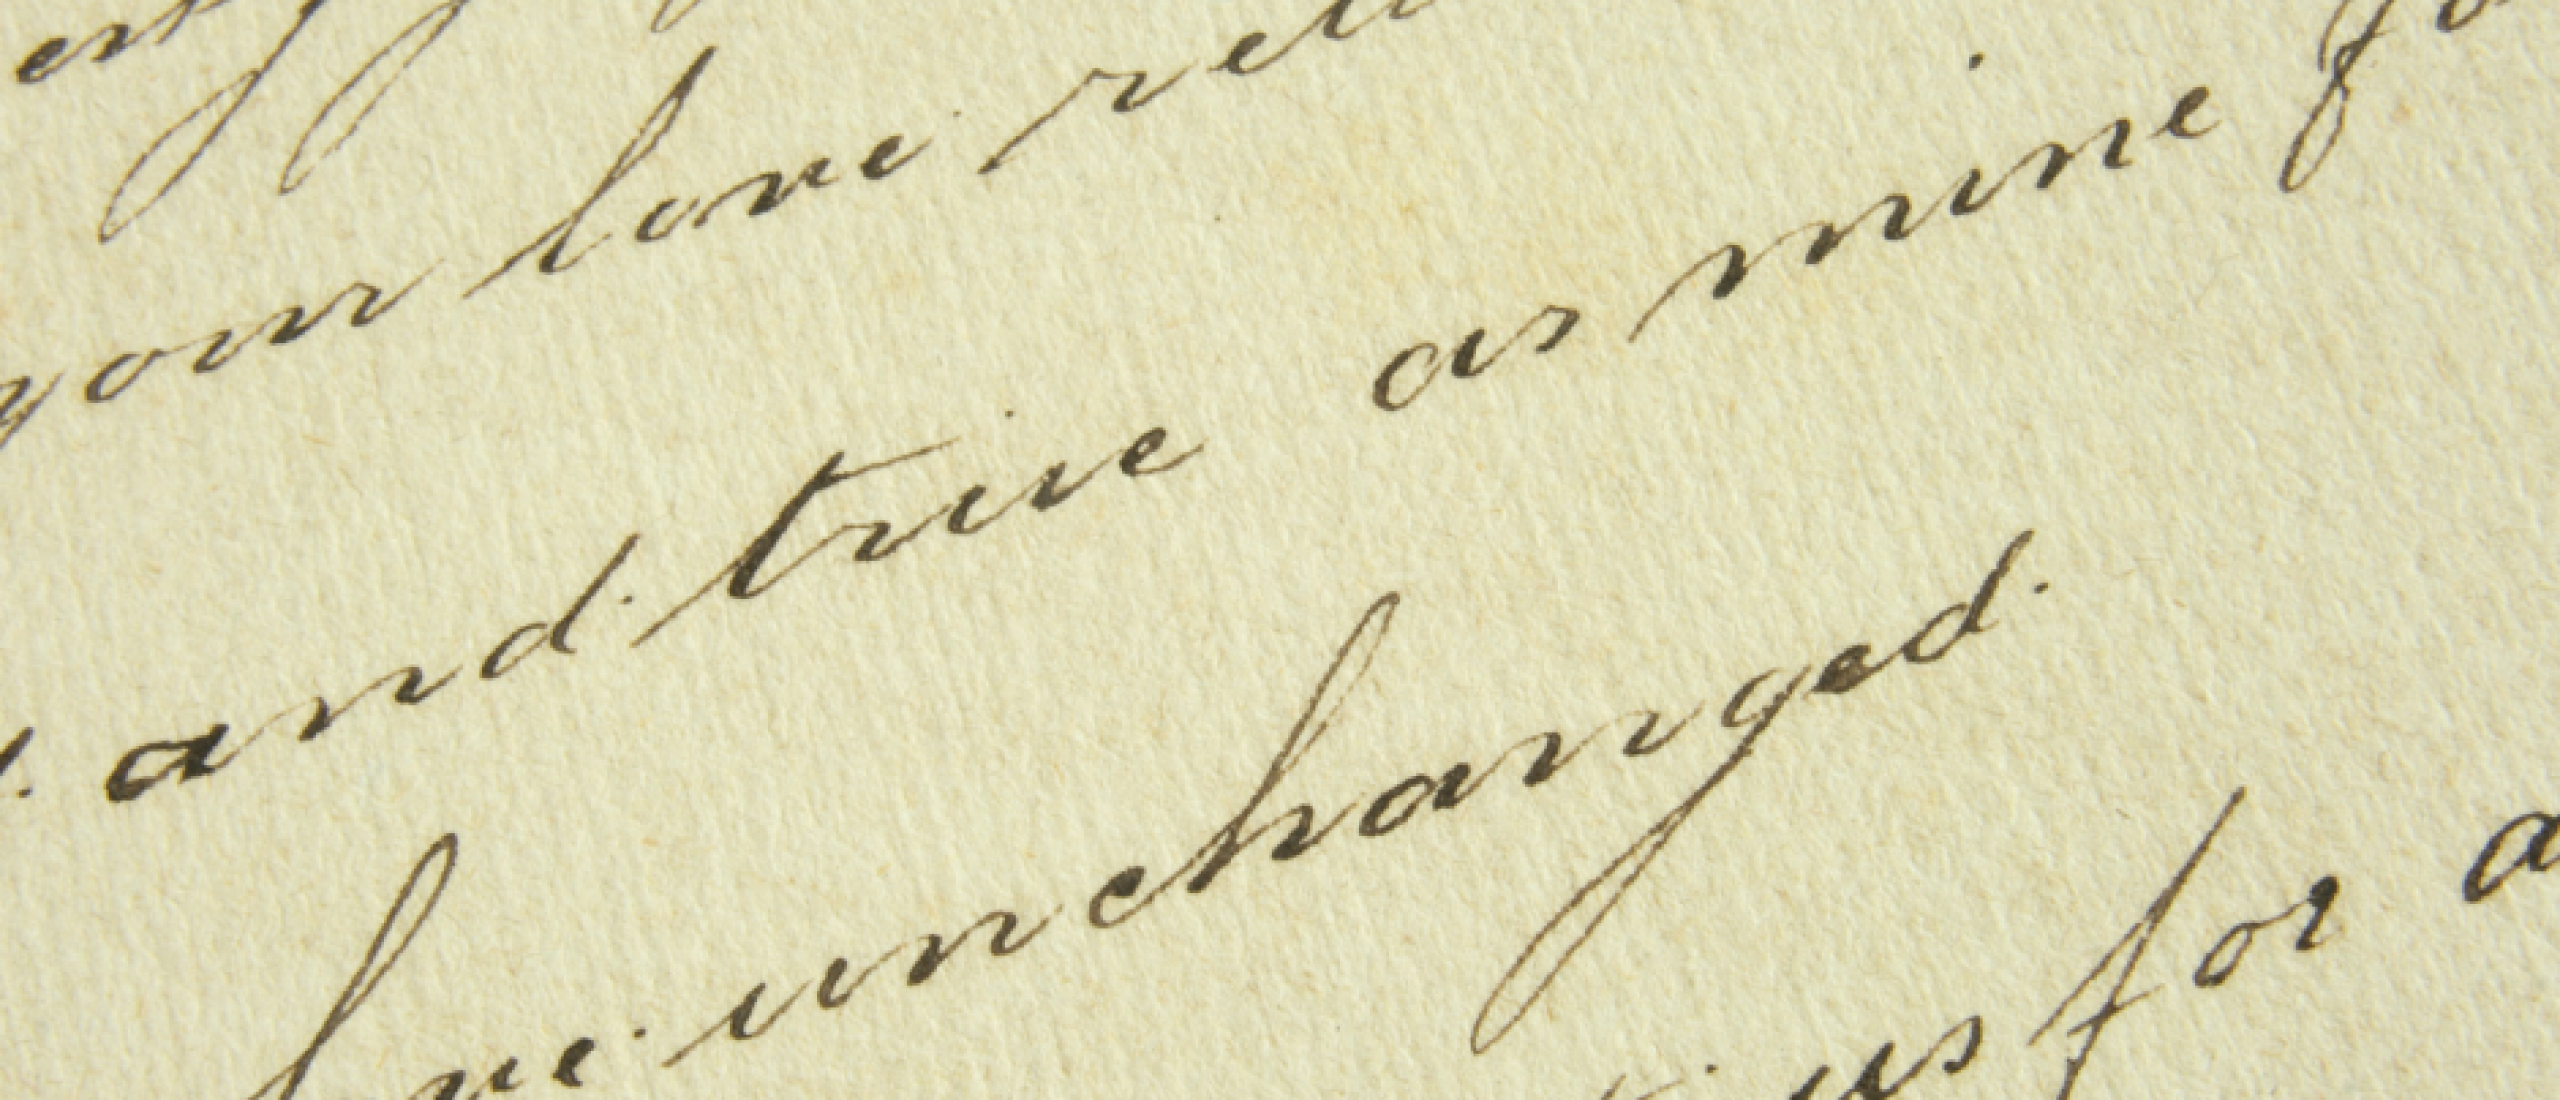 your love
and true as mine
love unchanged.
us for a